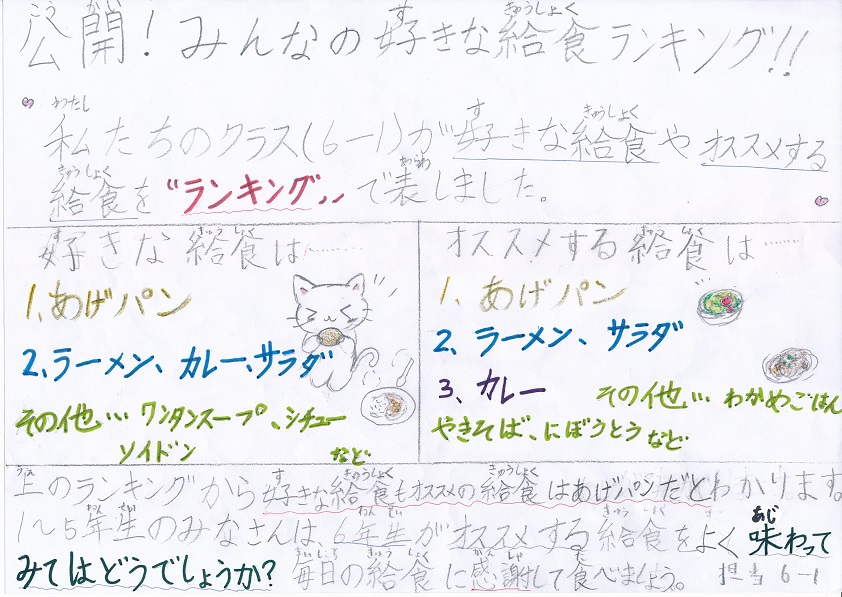 公開！みんなの好きな給食ランキング!!
私たちのクラス(6-1)が好きな給食やオススメする
給食を"ランキング"で表しました。
好きな給食は………
1、あげパン
2、ラーメン、カレー、サラダ
その他… ワンタンスープ、シチュー
ソイドン など
オススメする給食は……
1、あげパン
2、ラーメン、サラダ
3、カレー
その他… わかめごはん
やきそば、にぼうとう など
上のランキングから好きな給食もオススメの給食はあげパンだとわかります。
1〜5年生のみなさんは、6年生がオススメする給食をよく味わって
みてはどうでしょうか？毎日の給食に感謝して食べましょう。 担当 6-1